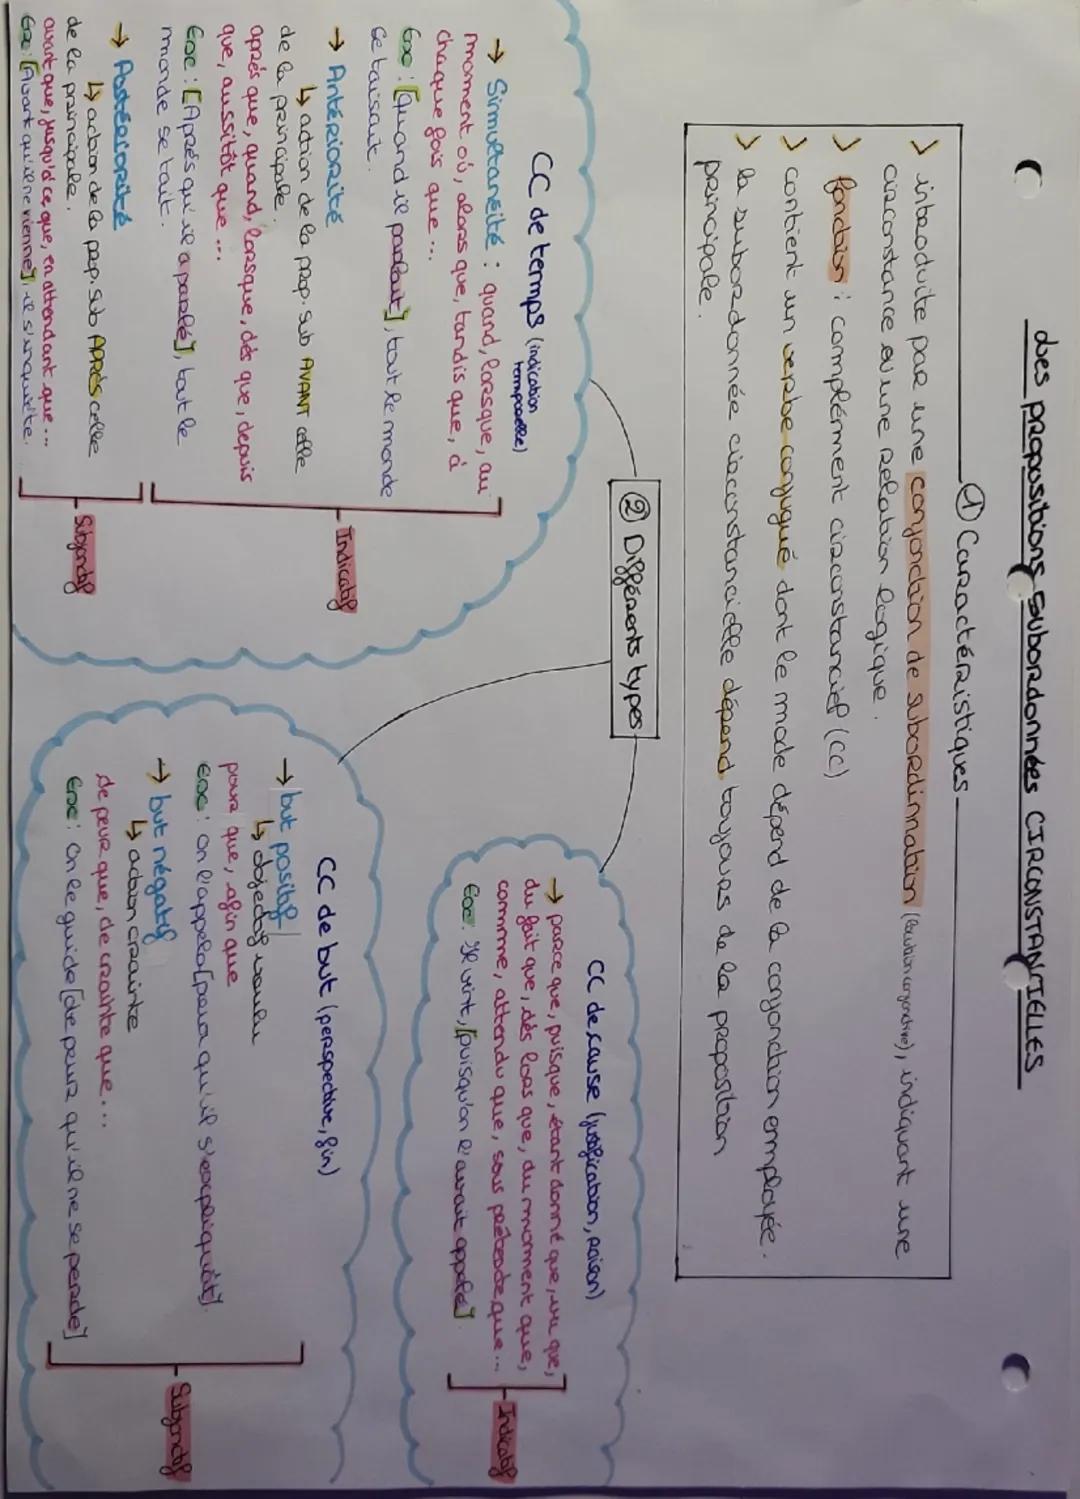 Les propositions subordonnées CIRCONSTANCIELLES
① Caractéristiques
> introduite par une conjonction de subordinnation (locution conjonctive), indiquant une
circonstance ou une relation logique.
> fonction : complément circonstanciel (CC)
> contient un verbe conjugué dont le mode dépend de la conjonction employée.
> la subordonnée circonstancielle dépend toujours de la proposition
principale.
② Différents types
CC de temps (indication
temporelle)
→ Simultanéité : quand, lorsque, au
moment où, alors que, tandis que, à
chaque fois que ...
Exe : [Quand il parlait], tout le monde
se taisait.
→ Antériorité
↳ action de la prop. sub AVANT celle
de la principale.
après que, quand, lorsque, dès que, depuis
que, aussitôt que ...
Exe : [Après qu'il a parlé], tout le
monde se tait.
Indicatif
→ Postériorité
↳ action de la prop. sub APRÈS celle
de la principale.
avant que, jusqu'à ce que, en attendant que ...
Exe : [Avant qu'il ne vienne], il s'inquiète.
Subjonctif
CC de cause (justification, raison)
→ parce que, puisque, étant donné que, vu que,
du fait que, dès lors que, du moment que,
comme, attendu que, sous prétexte que ...
Exe : Il vint, [puisqu'on l'avait appelé]
Indicatif
CC de but (perspective, fin)
→ but positif
↳ objectif voulu
pour que, afin que
exe : on l'appela [pour qu'il s'expliquât].
→ but négatif
↳ action crainte
de peur que, de crainte que ...
Exe : On le guide [de peur qu'il ne se perde]
Subjonctif